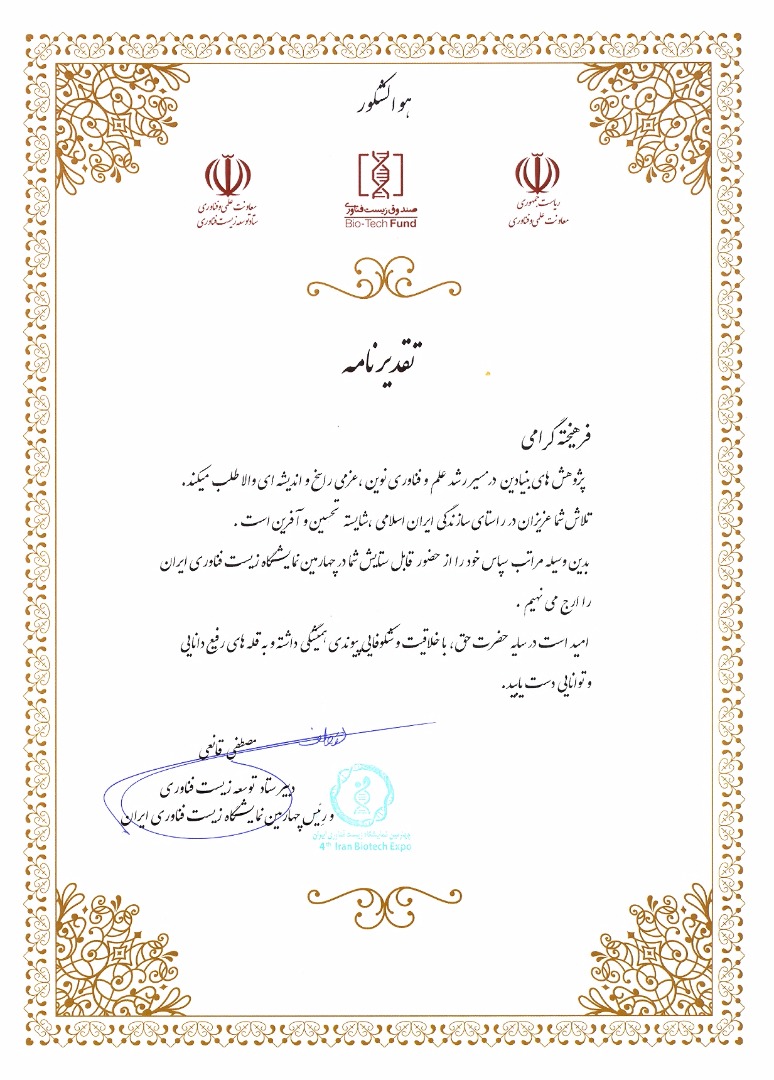 هوالشکور
ریاست جمهوری
معاونت علمی و فناوری
صندوق زیست فناوری
Bio-Tech Fund
معاونت علمی و فناوری
ستاد توسعه زیست فناوری
تقدیرنامه
فرهیخته گرامی
پژوهش های بنیادین در مسیر رشد علم و فناوری نوین ، عزمی راسخ و اندیشه ای والا طلب میکند.
تلاش شما عزیزان در راستای سازندگی ایران اسلامی ، شایسته تحسین و آفرین است .
بدین وسیله مراتب سپاس خود را از حضور قابل ستایش شما در چهارمین نمایشگاه زیست فناوری ایران
را ارج می نهیم .
امید است در سایه حضرت حق، با خلاقیت و شکوفایی پیوندی همیشگی داشته و به قله های رفیع دانایی
و توانایی دست یابید.
مصطفی قانعی
دبیر ستاد توسعه زیست فناوری
و رئیس چهارمین نمایشگاه زیست فناوری ایران
چهارمین نمایشگاه زیست فناوری ایران
4th Iran Biotech Expo